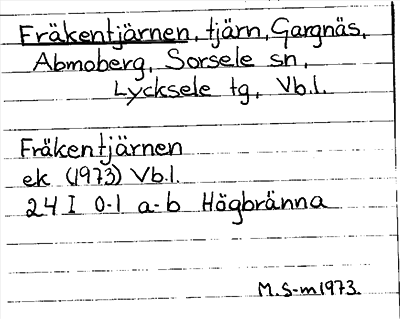 Fräkentjärnen, tjärn, Gargnäs,
Abmoberg, Sorsele sn,
Lycksele tg, Vb.l.
Fräkentjärnen
ek (1973) Vb.l.
24 I 0-1 a-b Högbränna
M.S-m 1973.